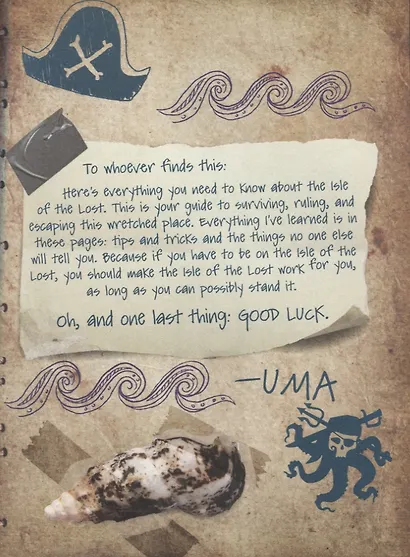 To whoever finds this:
Here's everything you need to know about the Isle
of the Lost. This is your guide to surviving, ruling, and
escaping this wretched place. Everything I've learned is in
these pages: tips and tricks and the things no one else
will tell you. Because if you have to be on the Isle of the
Lost, you should make the Isle of the Lost work for you,
as long as you can possibly stand it.
Oh, and one last thing: GOOD LUCK.
—UMA